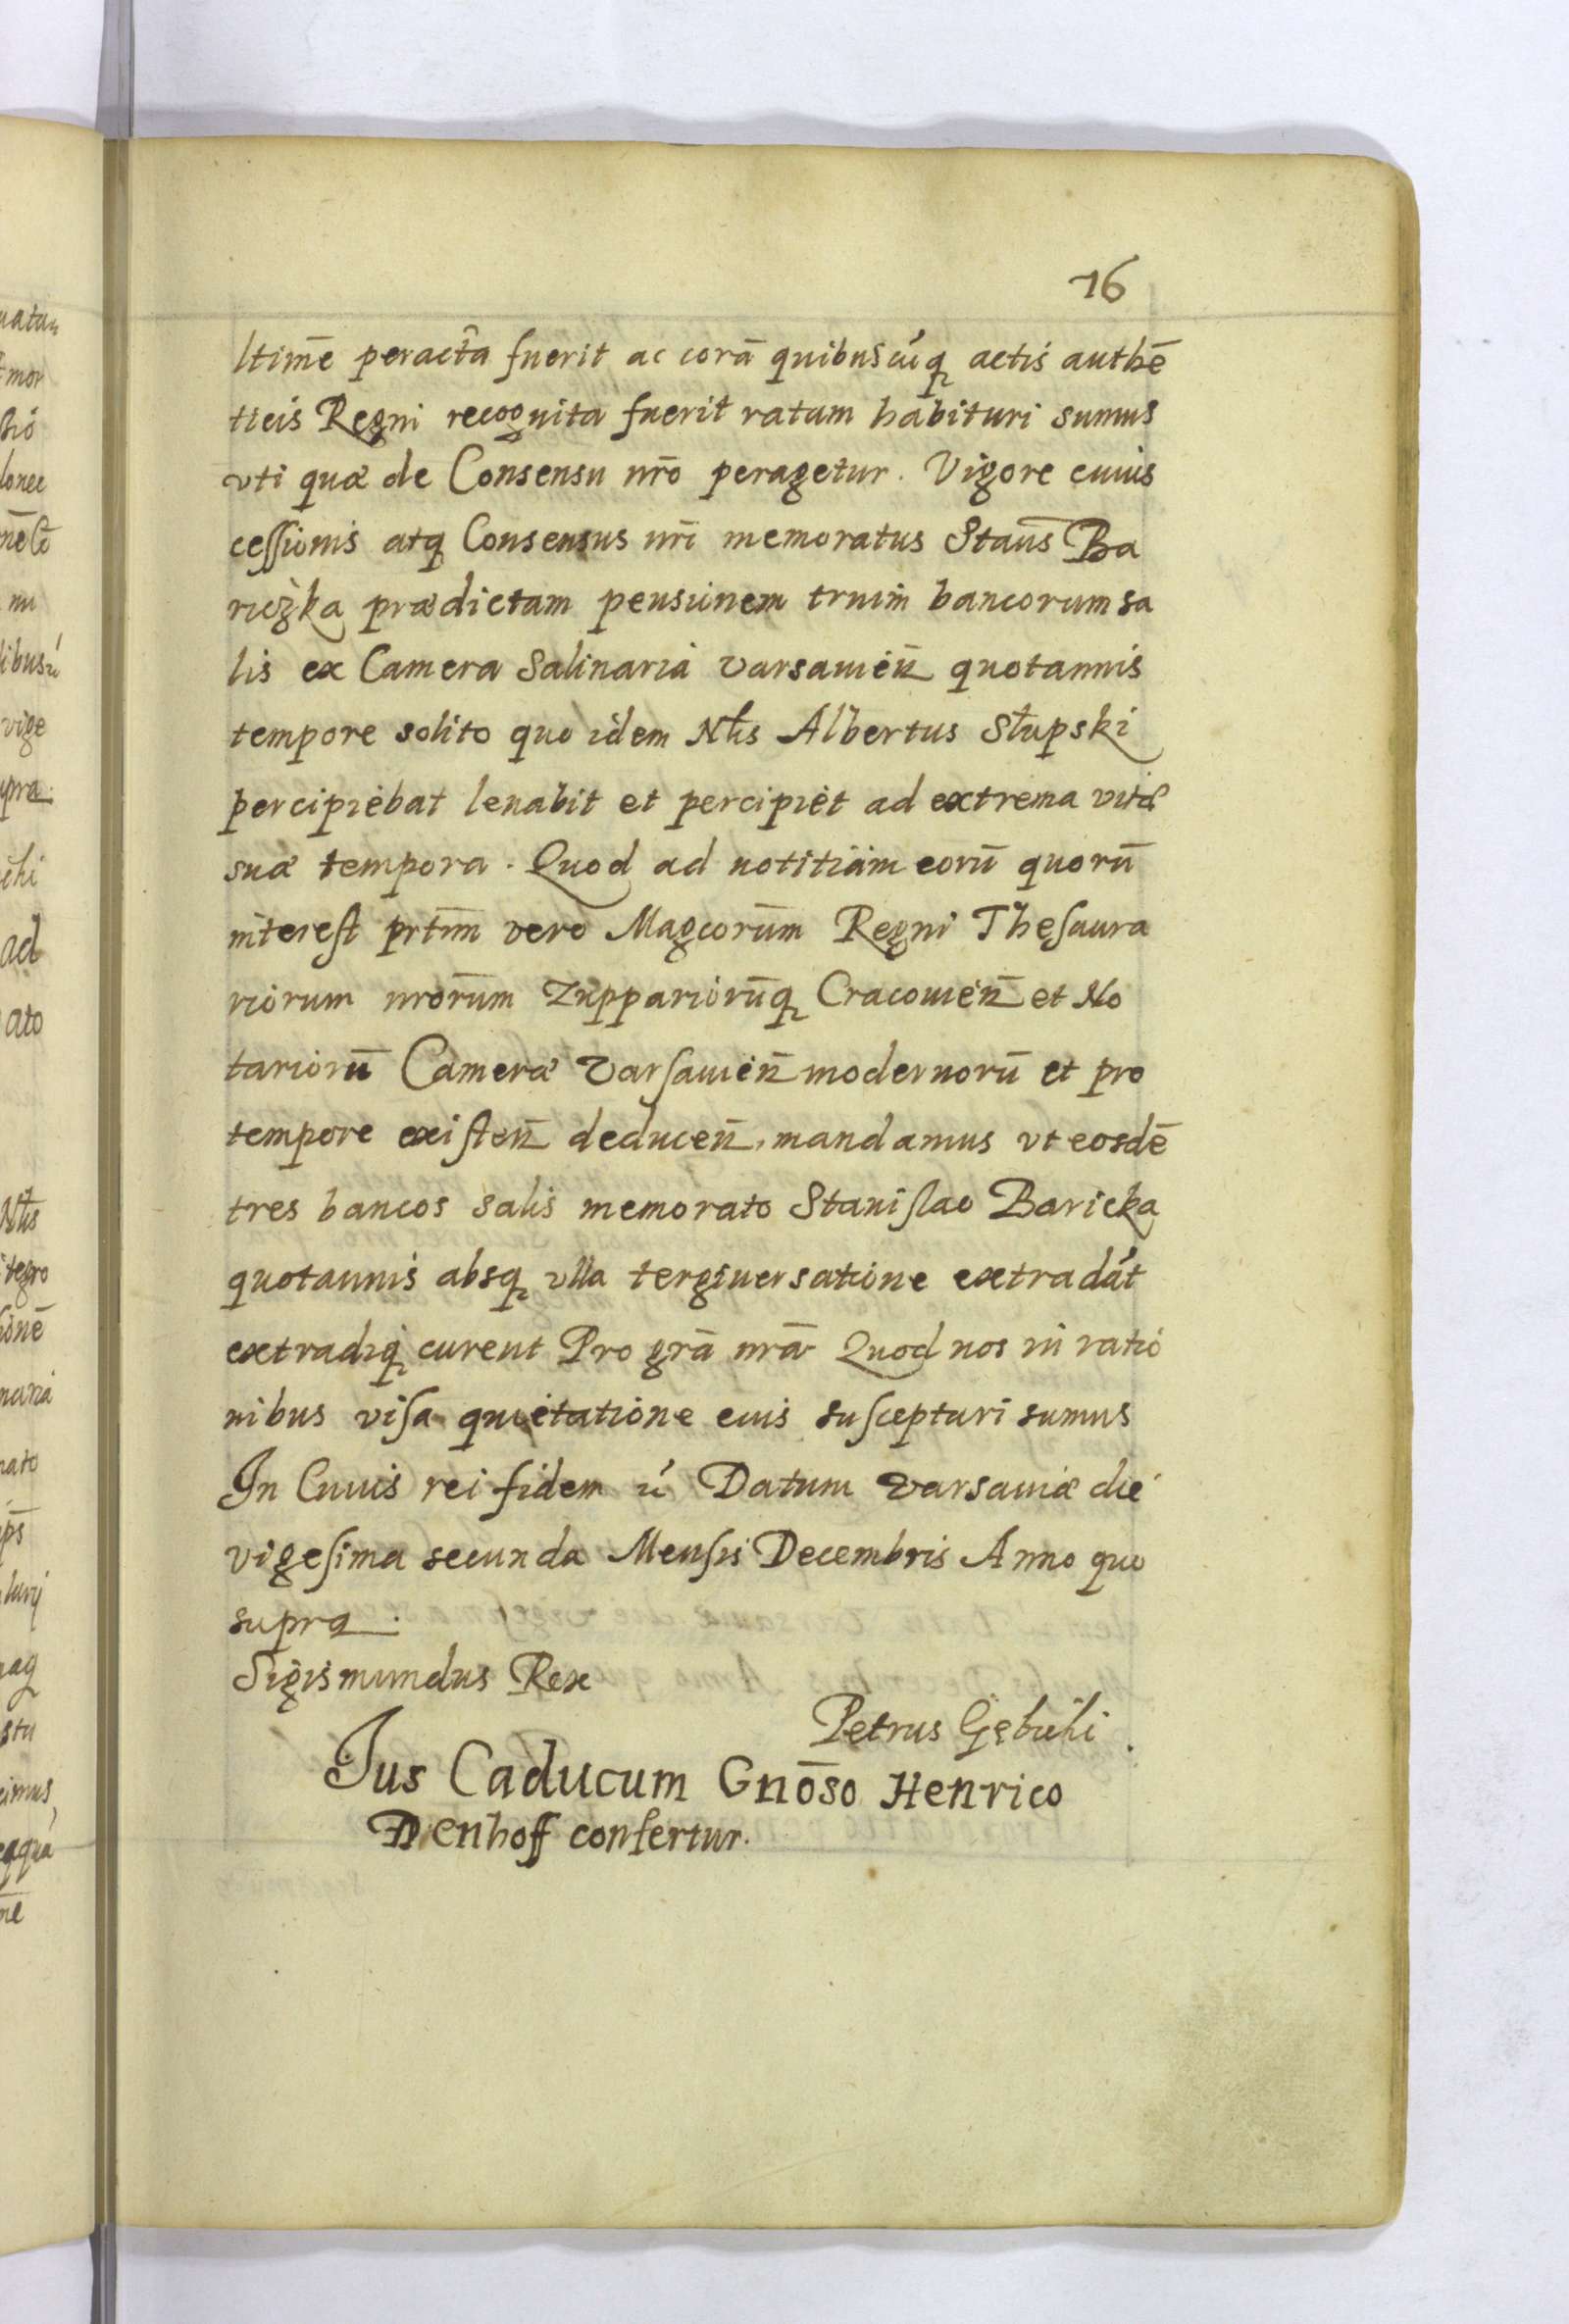 16
ltimē peracta fuerit ac corā quibuscúq actis authē
ticis Regni recognita fuerit ratam habituri sumus
vti quæ de Consensu nr̄o peragetur. Vigore cuius
cessionis atq Consensus nr̄i memoratus Stan̄s Ba
riczka prædictam pensionem trium bancorum sa
lis ex Camera Salinaria Varsauien̄ quotannis
tempore solito quo idem Nłis Albertus Słupski
percipiebat leuabit et percipiet ad extrema vitæ
suæ tempora. Quod ad notitiam eorū quorū
interest prt̄im vero Magcorūm Regni Thesaura
riorum nrōrum Zuppariorūq Cracouien̄ et No
tariorū Cameræ Varsauien̄ modernorū et pro
tempore existen̄ deducen̄, mandamus vt eosdē
tres bancos salis memorato Stanislao Baricka
quotannis absq vlla tergiuersatione extradát
extradiq curent Pro grā nrā Quod nos in ratio
nibus visa quietatione eius suscepturi sumus
In Cuius rei fidem ń Datum Varsauiæ die
vigesima secunda Mensis Decembris Anno quo
supra.
Sigismundus Rex
Petrus Gębicki.
Jus Caducum Gnōso Henrico
Denhoff confertur.